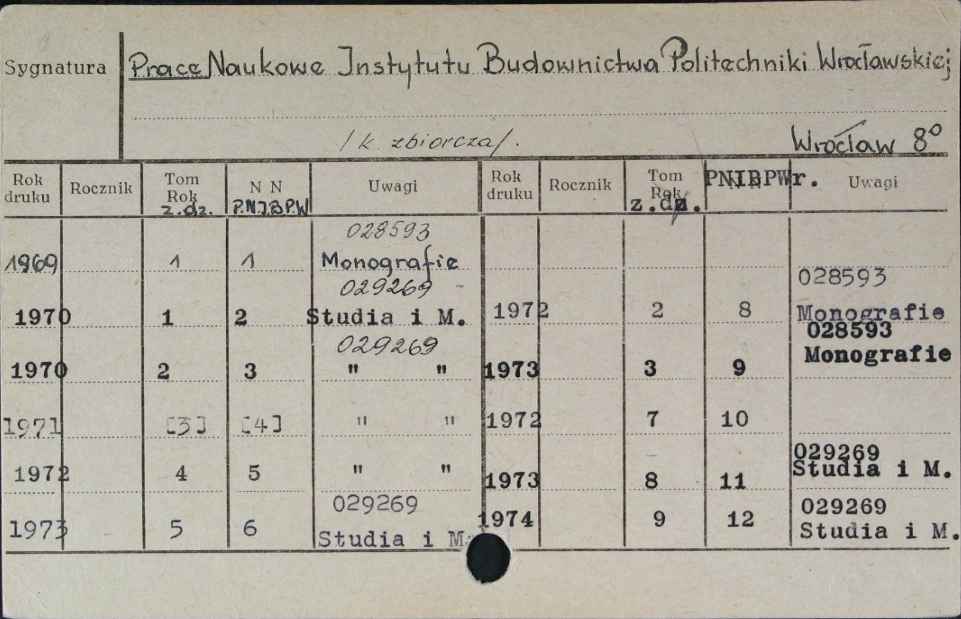 Sygnatura Prace Naukowe Instytutu Budownictwa Politechniki Wrocławskiej
/k. zbiorcza/. Wrocław 8°
Rok druku Rocznik Tom Rok z.dz. N N P.N.I.B.P.W Uwagi Rok druku Rocznik Tom Rok z.dz. PNIBPWr. Uwagi
028593
1969 1 1 Monografie
029269
1970 1 2 Studia i M.
029269
1970 2 3 " "
1971 [3] [4] " "
1972 4 5 " "
029269
1973 5 6 Studia i M.
028593
1972 2 8 Monografie
028593
1973 3 9 Monografie
1972 7 10
029269
1973 8 11 Studia i M.
029269
1974 9 12 Studia i M.